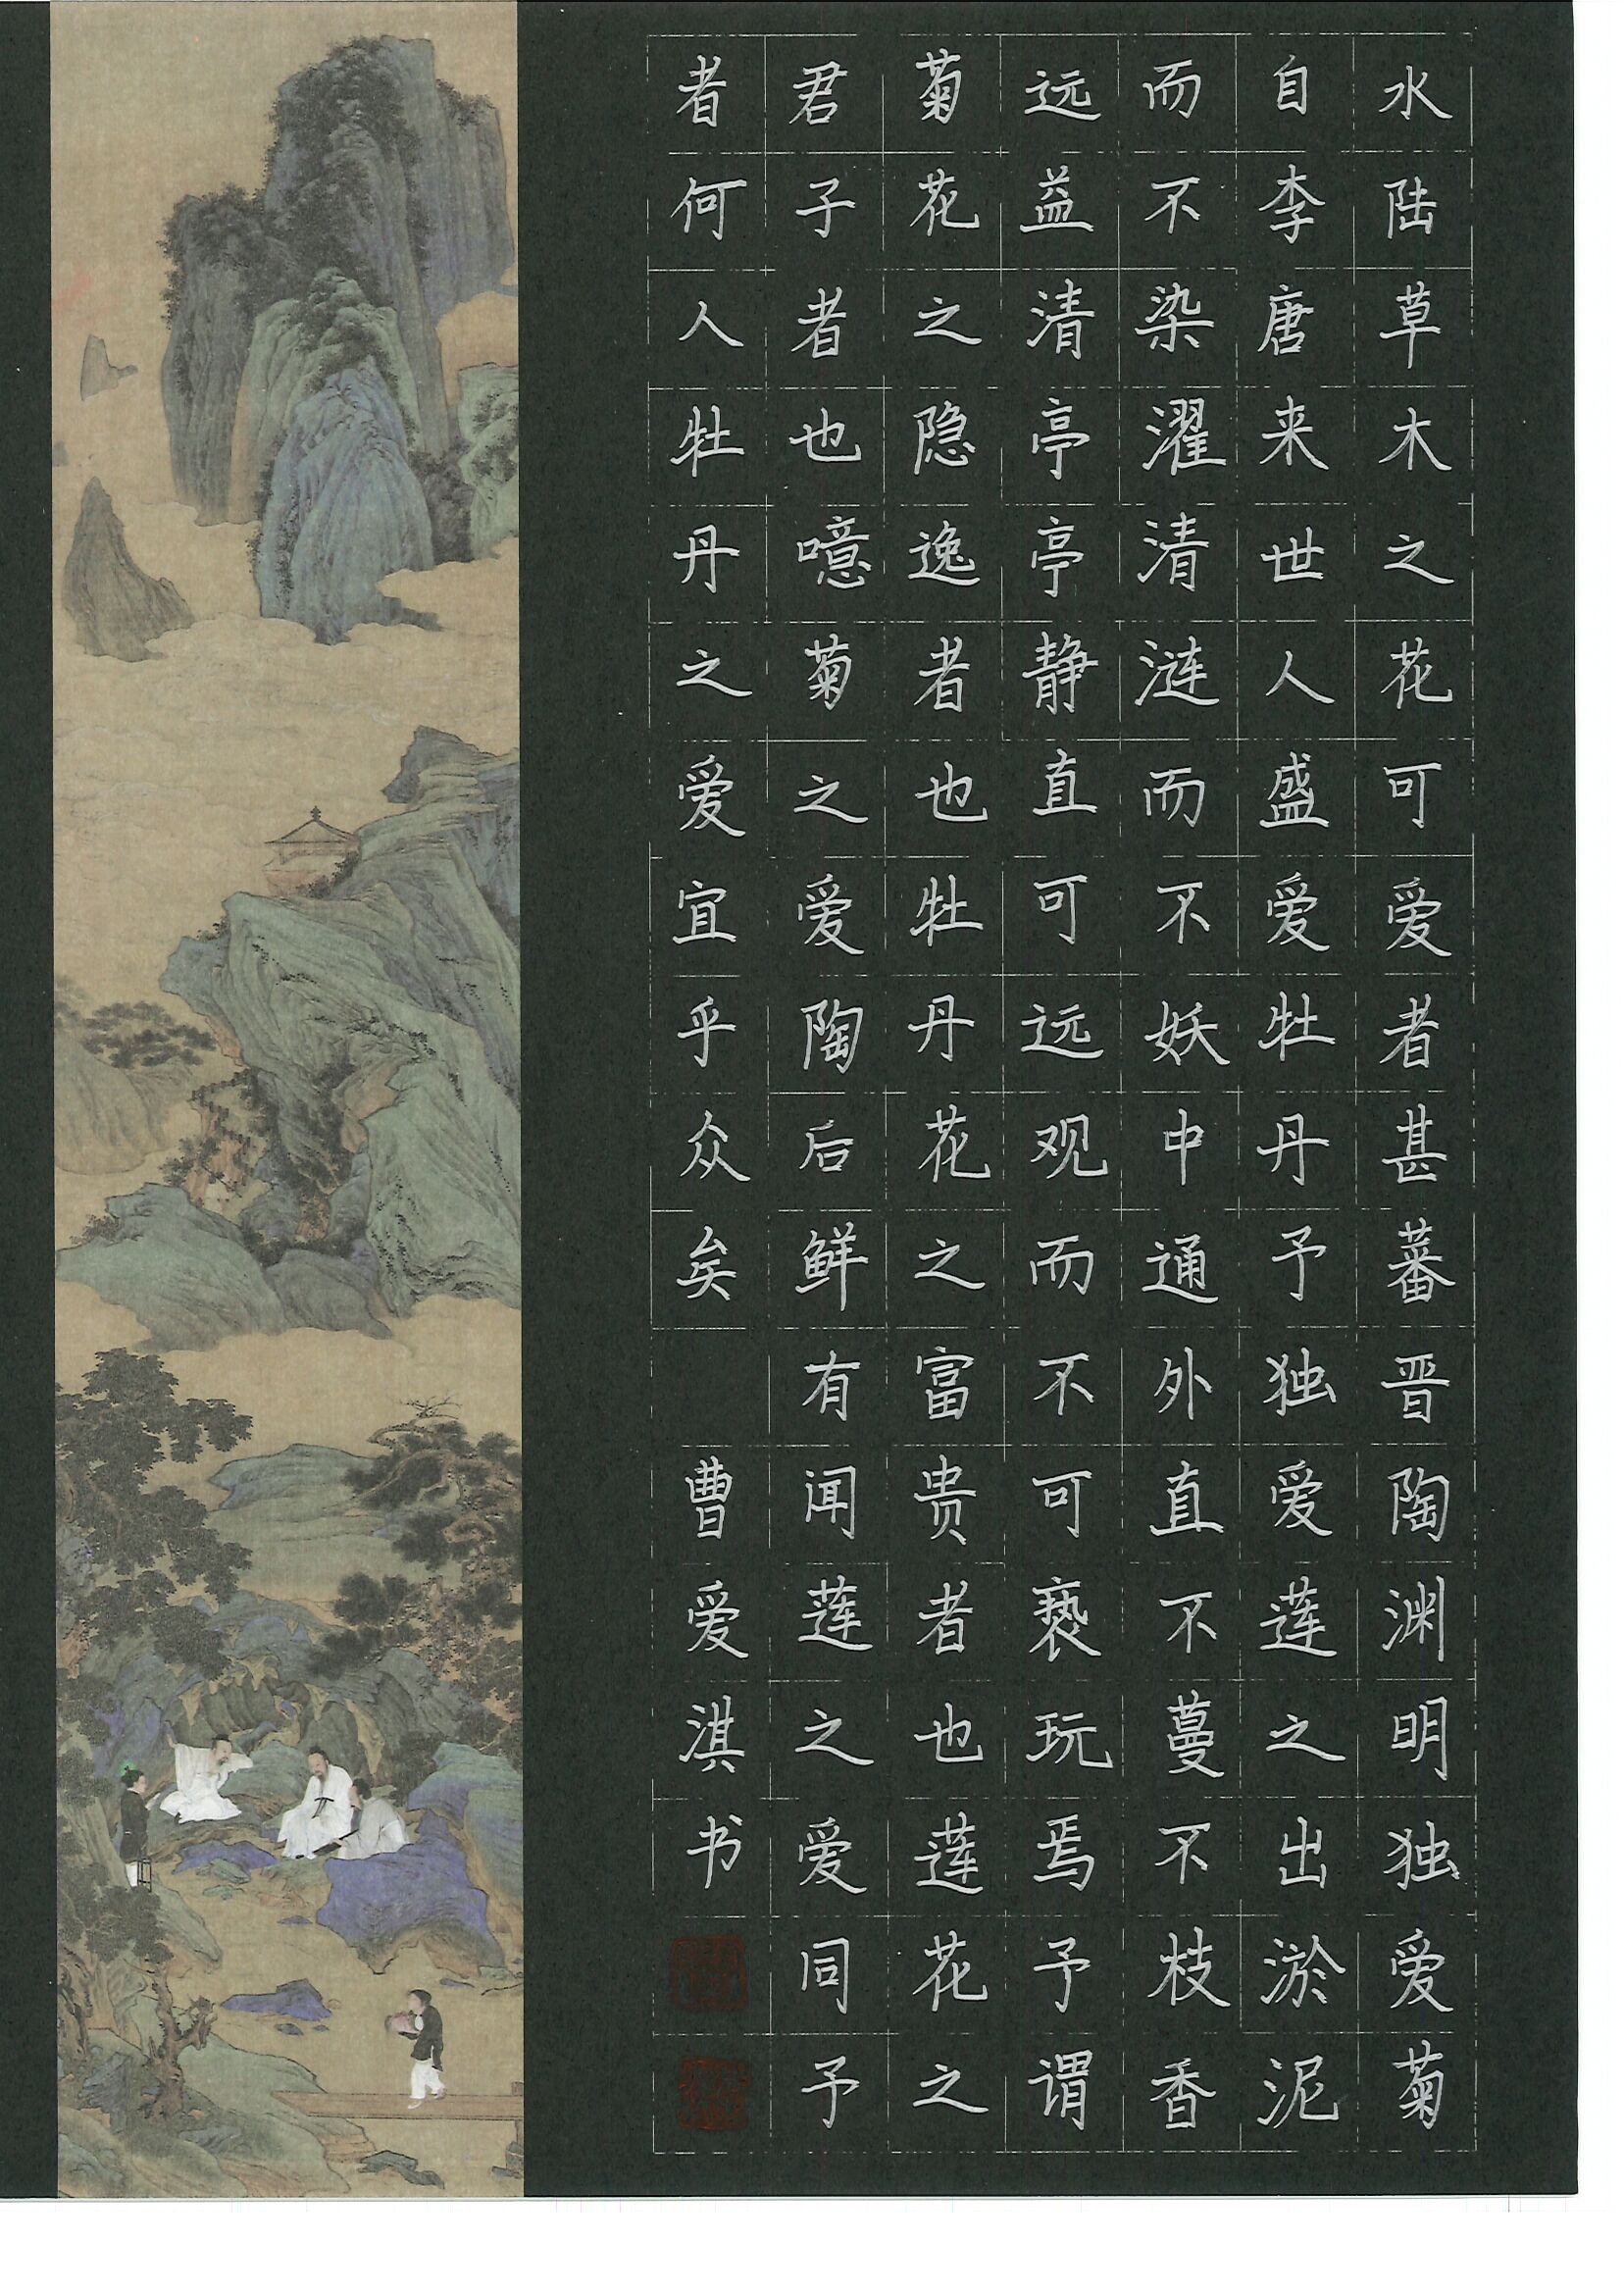 水陆草木之花可爱者甚蕃晋陶渊明独爱菊
自李唐来世人盛爱牡丹予独爱莲之出淤泥
而不染濯清涟而不妖中通外直不蔓不枝香
远益清亭亭静直可远观而不可亵玩焉予谓
菊花之隐逸者也牡丹花之富贵者也莲花之
君子者也噫菊之爱陶后鲜有闻莲之爱同予
者何人牡丹之爱宜乎众矣
曹爱淇书